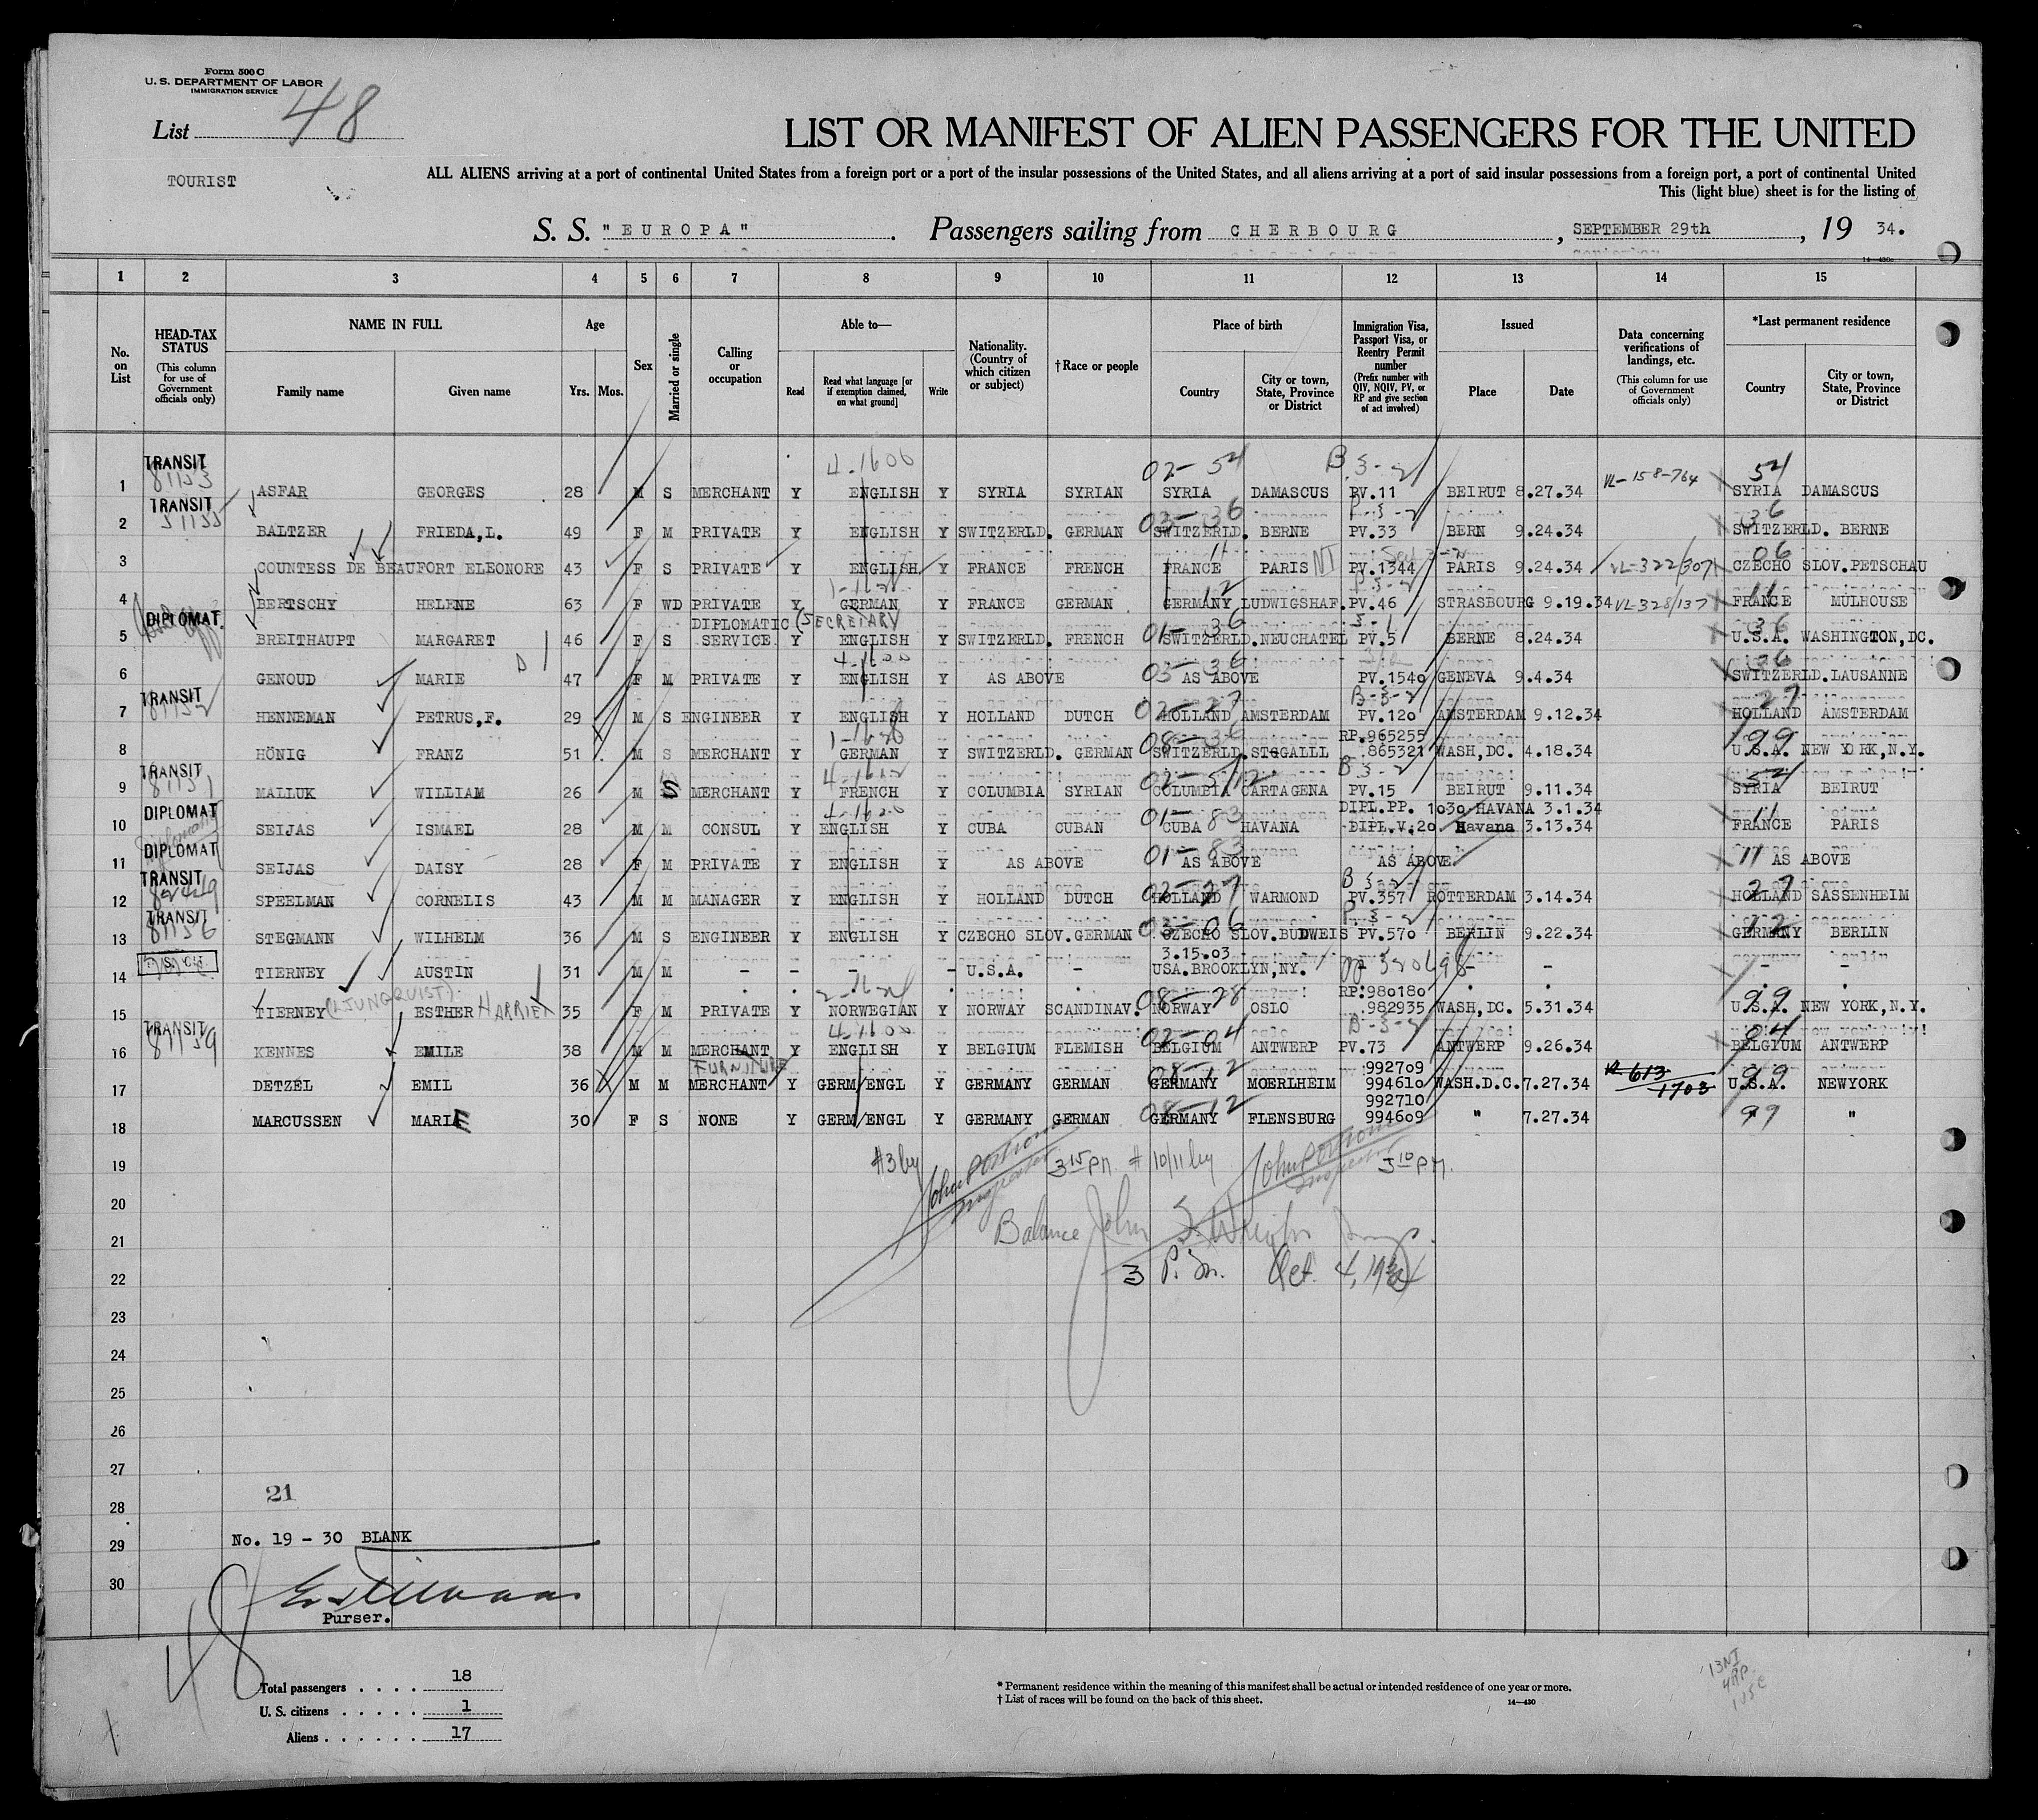 Form 500 C
U. S. DEPARTMENT OF LABOR
IMMIGRATION SERVICE
List 48
LIST OR MANIFEST OF ALIEN PASSENGERS FOR THE UNITED
TOURIST
ALL ALIENS arriving at a port of continental United States from a foreign port or a port of the insular possessions of the United States, and all aliens arriving at a port of said insular possessions from a foreign port, a port of continental United
This (light blue) sheet is for the listing of
S. S. "EUROPA". Passengers sailing from CHERBOURG, SEPTEMBER 29th, 19 34.
14—430
1 2 3 4 5 6 7 8 9 10 11 12 13 14 15
No. on List
HEAD-TAX STATUS (This column for use of Government officials only)
NAME IN FULL Family name Given name
Age Yrs. Mos.
Sex
Married or single
Calling or occupation
Able to— Read Read what language [or if exemption claimed, on what ground] Write
Nationality. (Country of which citizen or subject)
†Race or people
Place of birth Country City or town, State, Province or District
Immigration Visa, Passport Visa, or Reentry Permit number (Prefix number with QIV, NQIV, PV, or RP and give section of act involved)
Issued Place Date
Data concerning verifications of landings, etc. (This column for use of Government officials only)
*Last permanent residence Country City or town, State, Province or District
TRANSIT 81153 4-1600 02-54 B 3-2 VL-158-764 54
1 ASFAR GEORGES 28 M S MERCHANT Y ENGLISH Y SYRIA SYRIAN SYRIA DAMASCUS PV.11 BEIRUT 8.27.34 SYRIA DAMASCUS
TRANSIT 03-36 P-3-2 36
2 BALTZER FRIEDA,L. 49 F M PRIVATE Y ENGLISH Y SWITZERLD. GERMAN SWITZERLD. BERNE PV.33 BERN 9.24.34 SWITZERLD. BERNE
11 06
3 COUNTESS DE BEAUFORT ELEONORE 43 F S PRIVATE Y ENGLISH Y FRANCE FRENCH FRANCE PARIS NI PV.1344 PARIS 9.24.34 VL-322/307 CZECHO SLOV.PETSCHAU
12 P-3-2 11
4 BERTSCHY HELENE 63 F WD PRIVATE Y GERMAN Y FRANCE GERMAN GERMANY LUDWIGSHAF. PV.46 STRASBOURG 9.19.34 VL-328/137 FRANCE MULHOUSE
DIPLOMAT DIPLOMATIC (SECRETARY 01-36 3-1 36
5 BREITHAUPT MARGARET 46 F S SERVICE Y ENGLISH Y SWITZERLD. FRENCH SWITZERLD.NEUCHATEL PV.5 BERNE 8.24.34 U.S.A. WASHINGTON,DC.
4-1600 03-36 36
6 GENOUD MARIE 47 F M PRIVATE Y ENGLISH Y AS ABOVE AS ABOVE PV.1540 GENEVA 9.4.34 SWITZERLD.LAUSANNE
TRANSIT 02-27 B-3-2 27
7 HENNEMAN PETRUS,F. 29 M S ENGINEER Y ENGLISH Y HOLLAND DUTCH HOLLAND AMSTERDAM PV.120 AMSTERDAM 9.12.34 HOLLAND AMSTERDAM
08-36 RP.965255 99
8 HÖNIG FRANZ 51 M S MERCHANT Y GERMAN Y SWITZERLD. GERMAN SWITZERLD.STGGALLL .865321 WASH,DC. 4.18.34 U.S.A. NEW YORK,N.Y.
TRANSIT 81151 B 3-2 54
9 MALLUK WILLIAM 26 M S MERCHANT Y FRENCH Y COLUMBIA SYRIAN COLUMBIA CARTAGENA PV.15 BEIRUT 9.11.34 SYRIA BEIRUT
DIPLOMAT 4-1600 01-83 DIPL.PP. 1030 HAVANA 3.1.34 11
10 SEIJAS ISMAEL 28 M M CONSUL Y ENGLISH Y CUBA CUBAN CUBA HAVANA DIPL.V.20 Havana 3.13.34 FRANCE PARIS
DIPLOMAT 01-83
11 SEIJAS DAISY 28 F M PRIVATE Y ENGLISH Y AS ABOVE AS ABOVE AS ABOVE 11 AS ABOVE
TRANSIT 82449 02-27 B 3-2 27
12 SPEELMAN CORNELIS 43 M M MANAGER Y ENGLISH Y HOLLAND DUTCH HOLLAND WARMOND PV.357 ROTTERDAM 3.14.34 HOLLAND SASSENHEIM
TRANSIT 81156 03-06 P. 3-2 12
13 STEGMANN WILHELM 36 M S ENGINEER Y ENGLISH Y CZECHO SLOV.GERMAN CZECHO SLOV.BUDWEIS PV.570 BERLIN 9.22.34 GERMANY BERLIN
3.15.03
14 TIERNEY AUSTIN 31 M M - - - - U.S.A. - USA.BROOKLYN,NY. PP 380498 - - - -
(LJUNGQUIST) 08-28 RP:980180 99
15 TIERNEY ESTHER HARRIET 35 F M PRIVATE Y NORWEGIAN Y NORWAY SCANDINAV. NORWAY OSLO .982935 WASH,DC. 5.31.34 U.S.A. NEW YORK,N.Y.
TRANSIT 81159 4-1600 02-04 B-3-2 04
16 KENNES EMILE 38 M M MERCHANT Y ENGLISH Y BELGIUM FLEMISH BELGIUM ANTWERP PV.73 ANTWERP 9.26.34 BELGIUM ANTWERP
FURNITURE 08-12 992709 99
17 DETZEL EMIL 36 M M MERCHANT Y GERM/ENGL Y GERMANY GERMAN GERMANY MOERLHEIM 994610 WASH.D.C. 7.27.34 613/1703 U.S.A. NEWYORK
08-12 992710
18 MARCUSSEN MARIE 30 F S NONE Y GERM/ENGL Y GERMANY GERMAN GERMANY FLENSBURG 994609 " 7.27.34 99 "
19 #3 by Inspector 3 15 PM # 10/11 by Inspector 3 10 PM.
20
21 Balance John
22 3 P.M. Oct. 4, 1934
23
24
25
26
27
21
28
29 No. 19 - 30 BLANK
30
Purser.
48
Total passengers . . . . 18
U. S. citizens . . . . . 1
Aliens . . . . . . 17
* Permanent residence within the meaning of this manifest shall be actual or intended residence of one year or more.
† List of races will be found on the back of this sheet.
14—430
13 NI
4 RP
1 USC